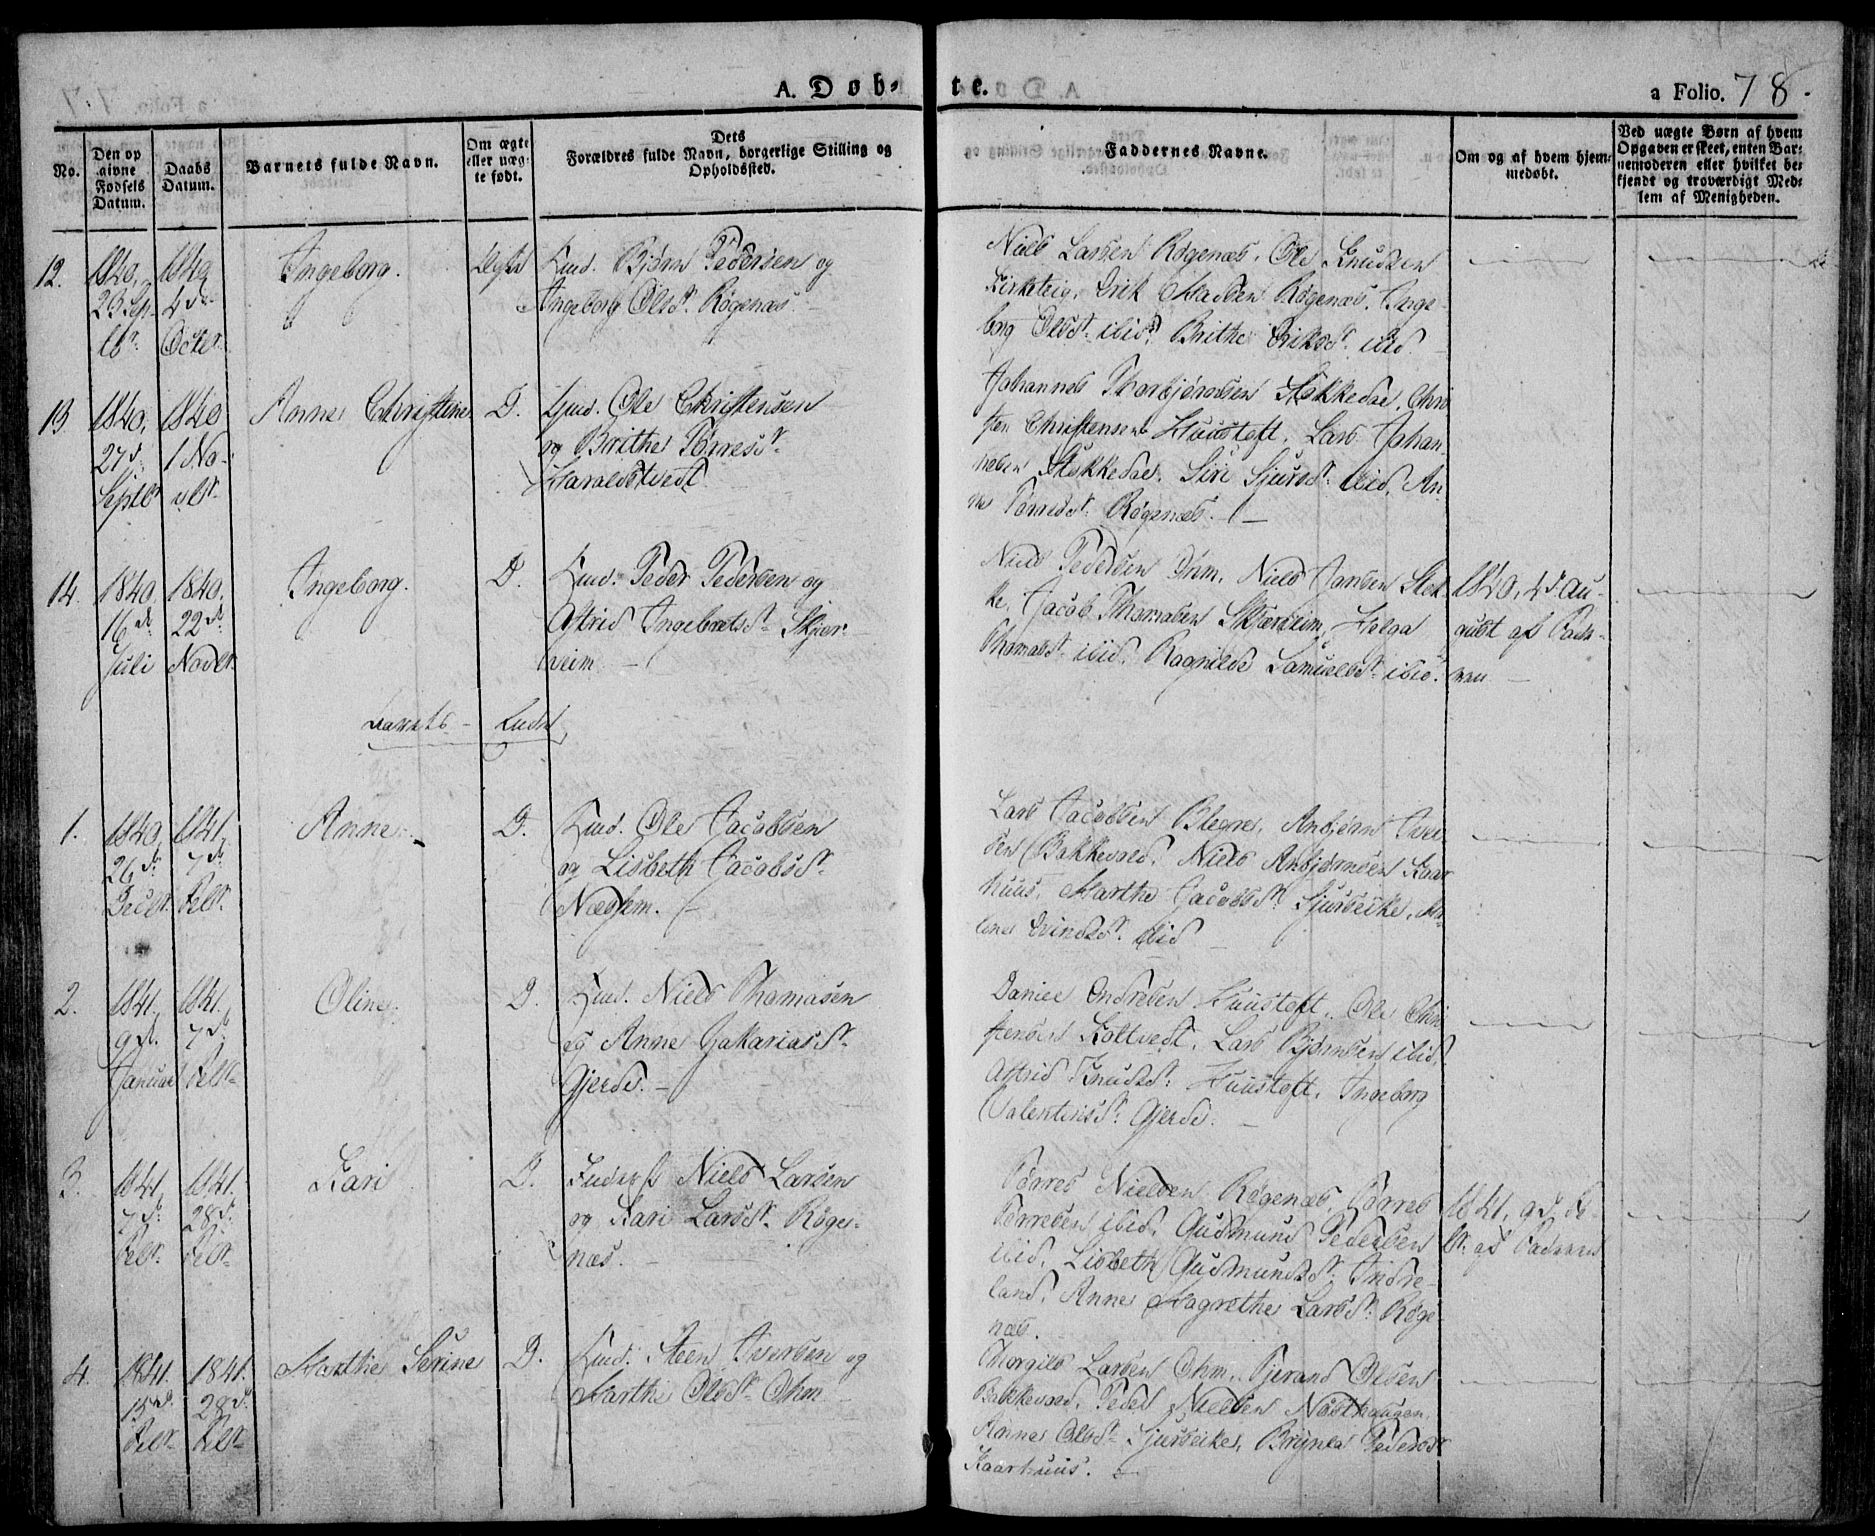 A. Døb- te. a Folio. 78.
No.
Den op
givne
Fødsels
Datum.
Daabs
Datum.
Barnets fulde Navn.
Om ægte
eller uæg-
te født.
Dets
Forældres fulde Navn, borgerlige Stilling og
Opholdssted.
Faddernes Navne.
Om og af hvem hjem-
medøbt.
Ved uægte Børn af hvem
Opgaven er skeet, enten Bar-
nemoderen eller hvilket be-
kjendt og troværdigt Med-
lem af Menigheden.
12.
1840,
23 Sep-
tbr.
1840
4d.
Octbr.
Ingeborg.
Ægte
Gmd. Bjørn Pedersen og
Ingeborg Olsdr. Røgenæs.
Niels Larsen Røgenæs, Ole Knudsen
Kirketeig, Erik Madsen Røgenæs, Inge-
borg Olsdr. ibid, Brithe Eriksdr. ibid.
13.
1840,
27d.
Septbr
1840
1 No-
vbr.
Anne Christine
D.
Gmd. Ole Christensen
og Brithe Tørresdr.
Haraldstvedt
Johannes Thorbjørnsen Stokkedal, Chri-
sten Christensen Huustoft, Lars Johan-
nesen Stokkedal, Siri Sjursdr. ibid, An-
ne Tørresdr. Røgenæs.
14.
1840,
16d.
Juli
1840,
22d.
Novbr.
Ingeborg.
D.
Gmd. Peder Pedersen og
Astrid Ingebretsdr. Skjær-
heim.
Niels Pedersen Ohm, Niels Jansen Stok-
ke, Jacob Thomasen Skjærheim, Helga
Thomasdr. ibid, Ragnilde Samuelsdr. ibid.
1840, 4d. Au-
gust af Fade-
ren
1.
1840,
26d.
Decbr.
1841,
7d.
Febr.
Anne.
D.
Gmd. Ole Jacobsen
og Lisbeth Jacobsdr.
Næshem.
Lars Jacobsen Blegre, Anbjørn Iver-
sen Bakkevold, Niels Anbjørnsen Kaar-
huus, Marthe Jacobsdr. Sjurseike,
Eindsdr. ibid
2.
1841,
9d.
Januar
1841.
7d.
Febr.
Oline.
D.
Gmd. Niels Thomasen
og Anne Zakariasdr.
Gjerde.
Daniel Endresen Huustoft, Ole Chri-
stensen Koltvedt, Lars Bjørnsen ibid,
Astrid Knudsdr. Huustoft, Ingeborg
Valentinsdr. Gjerde.
3.
1841,
7d.
Febr.
1841.
28d.
Febr.
Kari
D.
Inderst Niels Larsen
og Kari Larsdr. Røge-
næs.
Tørres Nielsen Røgenæs, Tørres
Tørresen ibid, Gudmund Pedersen
ibid, Lisbeth Gudmundsdr. Indre-
land, Anne Magrethe Larsdr. Røge-
næs.
1841, 9d. Fe-
br. af Faderen
4.
1841.
15d.
Febr.
1841.
28d.
Febr.
Marthe Serine
D.
Gmd. Steen Iversen og
Marthe Olsdr. Ohm
Thorgils Larsen Ohm, Tjerand Olsen
Bakkevold, Peder Nielsen Nøsthaugen,
Anne Olsdr. Sjurseike, Brynla Pedersdr.
Kaarhuus.